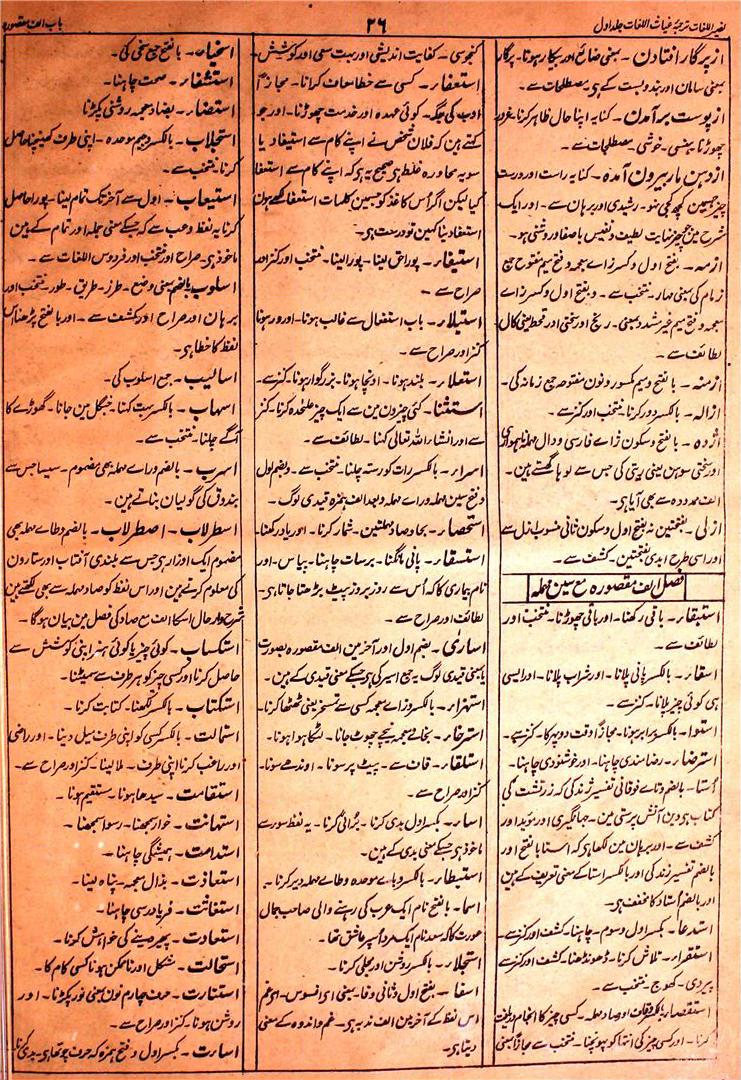 باب الف مقصورہ
۲۶
نصیر اللغات ترجمۂ غیاث اللغات جلد اول
از پرگار افتادن۔ بمعنی ضائع اور بیکار ہونا۔ پرگار
بمعنی سامان اور بندوبست کے ہی۔ مصطلحات سے۔
از پوست برآمدن۔ کنایہ اپنا حال ظاہر کرنا۔ غرور
چھوڑنا۔ ہنسی۔ خوشی۔ مصطلحات سے۔
از دہن مار بیرون آمدہ۔ کنایہ راست اور درست
چیز جسمیں کچھ کجی نہو۔ رشیدی اور برہان سے۔ اور ایک
شرح میں چیز نہایت لطیف و نفیس باصفا و روشنی ہو۔
ازمہ۔ بفتح اول و کسر زاے معجمہ و فتح میم مفتوح جمع
زمام کی بمعنی مہار۔ منتخب سے۔ و بفتح اول و کسر زاے
معجمہ و فتح میم غیر مشدد بمعنی۔ رنج اور سختی اور قحط یعنی کال
لطائف سے۔
ازمنہ۔ بالفتح و میم مکسور و نون مفتوحہ جمع زمانہ کی۔
ازالہ۔ بالکسر دور کرنا۔ منتخب اور کنز سے۔
اژدہ۔ بالفتح و سکون زاے فارسی و دال مہملہ ناہمواری
اور سختی سوہن یعنی ریتی کی جس سے لوہا گھستے ہین۔
الف ممدودہ سے بھی آیا ہی۔
ازلی۔ بفتحتین نہ بفتح اول و سکون ثانی منسوب ازل سے
اور اسی طرح ابدی بفتحتین۔ کشف سے۔
فصل الف مقصورہ مع سین مہملہ
استبقار۔ باقی رکھنا۔ اور باقی چھوڑنا۔ منتخب اور
لطائف سے۔
اسقار۔ بالکسر پانی پلانا۔ اور شراب پلانا۔ اور ایسی
ہی کوئی چیز پلانا۔ کنز سے۔
استوا۔ بالکسر برابر ہونا۔ مجازاً وقت دوپہر کا۔ کنز سے۔
استرضار۔ رضامندی چاہنا۔ اور خوشنودی چاہنا۔
اُستا۔ بالضم و تاے فوقانی تفسیر ژند کی کہ زرتشت کی
کتاب ہی دین آتش پرستی مین۔ جہانگیری اور مؤید اور
کشف سے۔ اور برہان مین لکھا ہی کہ استا بالفتح اور
بالضم تفسیر ژند کی اور بالکسر استا کے معنی تعریف کے ہین
اور بالضم اُستاد کا مخفف ہی۔
استدعا۔ بکسر اول و سوم۔ چاہنا۔ کشف اور کنز سے۔
استقرار۔ تلاش کرنا۔ ڈھونڈھنا۔ کشف اور کنز سے
پیروی۔ کھوج۔ منتخب سے۔
استقصار۔ بالکسر و قاف اور صاد مہملہ۔ کسی چیز کا انجام دریافت
کرنا۔ اور کسی چیز کی انتہا کو پہونچنا۔ منتخب سے مجازاً بمعنی
کنجوسی۔ کفایت اندیشی اور بہت سعی اور کوشش۔
استعفار۔ کسی سے خطا معاف کرانا۔ مجازاً
ادب کی جگہ۔ کوئی عہدہ اور خدمت چھوڑنا۔ اور جو
کہتے ہین کہ فلان شخص نے اپنے کام سے استیفا دیا
سو یہ محاورہ غلط ہی صحیح یہ ہی کہ اپنے کام سے استعفا
کیا لیکن اگر اُس کاغذ کو جسمین کلمات استعفا لکھے ہون
استعفا دینا کہین تو درست ہی۔
استیفار۔ پورا حق لینا۔ پورا لینا۔ منتخب اور کنز اور
صراح سے۔
استیلار۔ باب استفعال سے غالب ہونا۔ اور ور ہونا
کنز اور صراح سے۔
استعلار۔ بلند ہونا۔ اونچا ہونا۔ بزرگوار ہونا۔ کنز سے۔
استثنا۔ کئی چیزون مین سے ایک چیز علٰحدہ کرنا۔ کنز
سے اور انشاء اللہ تعالی کہنا۔ لطائف سے۔
اسرار۔ بالکسر رات کو رستہ چلنا۔ منتخب سے۔ و بضم اول
و فتح سین مہملہ و راے مہملہ و بعد الف ہمزہ قیدی لوگ۔
استحصار۔ بحا و صاد مہملتین۔ شمار کرنا۔ اور یاد رکھنا۔
استسقار۔ پانی مانگنا۔ برسات چاہنا۔ پیاس۔ اور
نام بیماری کا کہ اُس سے روز بروز پیٹ بڑھتا جاتا ہی۔
لطائف اور صراح سے۔
اساریٰ۔ بضم اول اور آخر مین الف مقصورہ بصورت
یا بمعنی قیدی لوگ یہ جمع اسیر کی ہی جسکے معنی قیدی کے ہین۔
استہزار۔ بالکسر و زاے معجمہ کسی سے تمسخر یعنی ٹھٹھا کرنا۔
استرخار۔ بخاے معجمہ نیچے چھوٹ جانا۔ لٹکا ہوا ہونا۔
استلقار۔ قاف سے۔ پیٹ پر سونا۔ اوندھے سونا۔
کنز اور صراح سے۔
اسار۔ بکسر اول بدی کرنا۔ برُائی کرنا۔ یہ لفظ سور سے
ماخوذ ہی جسکے معنی بدی کے ہین۔
استبطار۔ بالکسر و باے موحدہ و طاے مہملہ دیر کرنا۔
اسما۔ بالفتح نام ایک عرب کی رہنے والی صاحب جمال
عورت کا کہ سعد نام ایک مرد اُسپر عاشق تھا۔
استجلار۔ بالکسر روشن اور مجلی کرنا۔
اسفا۔ بفتح اول و ثانی و فا۔ بمعنی ای افسوس۔ ای غم
اس لفظ کے آخر مین الف ندبہ ہی۔ غم و اندوہ کے معنی
دیتا ہی۔
اسخیاء۔ بالفتح جمع سخی کی۔
استشفار۔ صحت چاہنا۔
استضار۔ بضاد معجمہ روشنی پکڑنا
استجلاب۔ بالکسر و جیم موحدہ۔ اپنی طرف کھینچنا حاصل
کرنا۔ منتخب سے۔
استیعاب۔ اول سے آخر تک تمام لینا۔ پورا حاصل
کرنا یہ لفظ وعب سے کہ جسکے معنی جملہ اور تمام کے ہین
ماخوذ ہی۔ صراح اور منتخب اور فردوس اللغات سے۔
اسلوب بالضم بمعنی وضع۔ طرز۔ طریق۔ طور۔ منتخب اور
برہان اور صراح اور کشف سے۔ اور بالفتح پڑھنا اس
لفظ کا خطا ہی۔
اسالیب۔ جمع اسلوب کی۔
اسہاب۔ بالکسر بہت کہنا۔ جنگل مین جانا۔ گھوڑے کا
آگے چلنا۔ منتخب سے۔
اسرب۔ بالضم و راے مہملہ بھی مضموم۔ سیسا جس سے
بندوق کی گولیان بناتے ہین۔
اسطرلاب۔ اصطرلاب۔ بالضم و طاے مہملہ بھی
مضموم ایک اوزار ہی جس سے بلندی آفتاب اور ستارون
کی معلوم کرتے ہین اور اس لفظ کو صاد مہملہ سے بھی لکھتے ہین
شرح وار حال اسکا الف مع صاد کی فصل مین بیان ہوگا۔
استکساب۔ کوئی چیز یا کوئی ہنر اپنی کوشش سے
حاصل کرنا اور کسی چیز کو ہر طرف سے سمیٹنا۔
استکتاب۔ بالکسر لکھنا۔ کتابت کرنا۔
استمالت۔ بالکسر کسی کو اپنی طرف میل دینا۔ اور راضی
اور راغب کرنا اپنی طرف۔ ملا لینا۔ کنز اور صراح سے۔
استقامت۔ سیدھا ہونا۔ مستقیم ہونا۔
استہانت۔ خوار سمجھنا۔ رسوا سمجھنا۔
استدامت۔ ہمیشگی چاہنا۔
استعاذت۔ بذال معجمہ۔ پناہ لینا۔
استغاثت۔ فریاد رسی چاہنا۔
استعادت۔ پھیر دینے کی خواہش کرنا۔
استحالت۔ مشکل اور ناممکن ہونا کسی کام کا۔
استنارت۔ حرف چہارم نون بمعنی نور پکڑنا۔ اور
روشن ہونا۔ کنز اور صراح سے۔
اسارت۔ بکسر اول و فتح ہمزہ کہ حرف چوتھا ہی۔ بدی کرنا۔